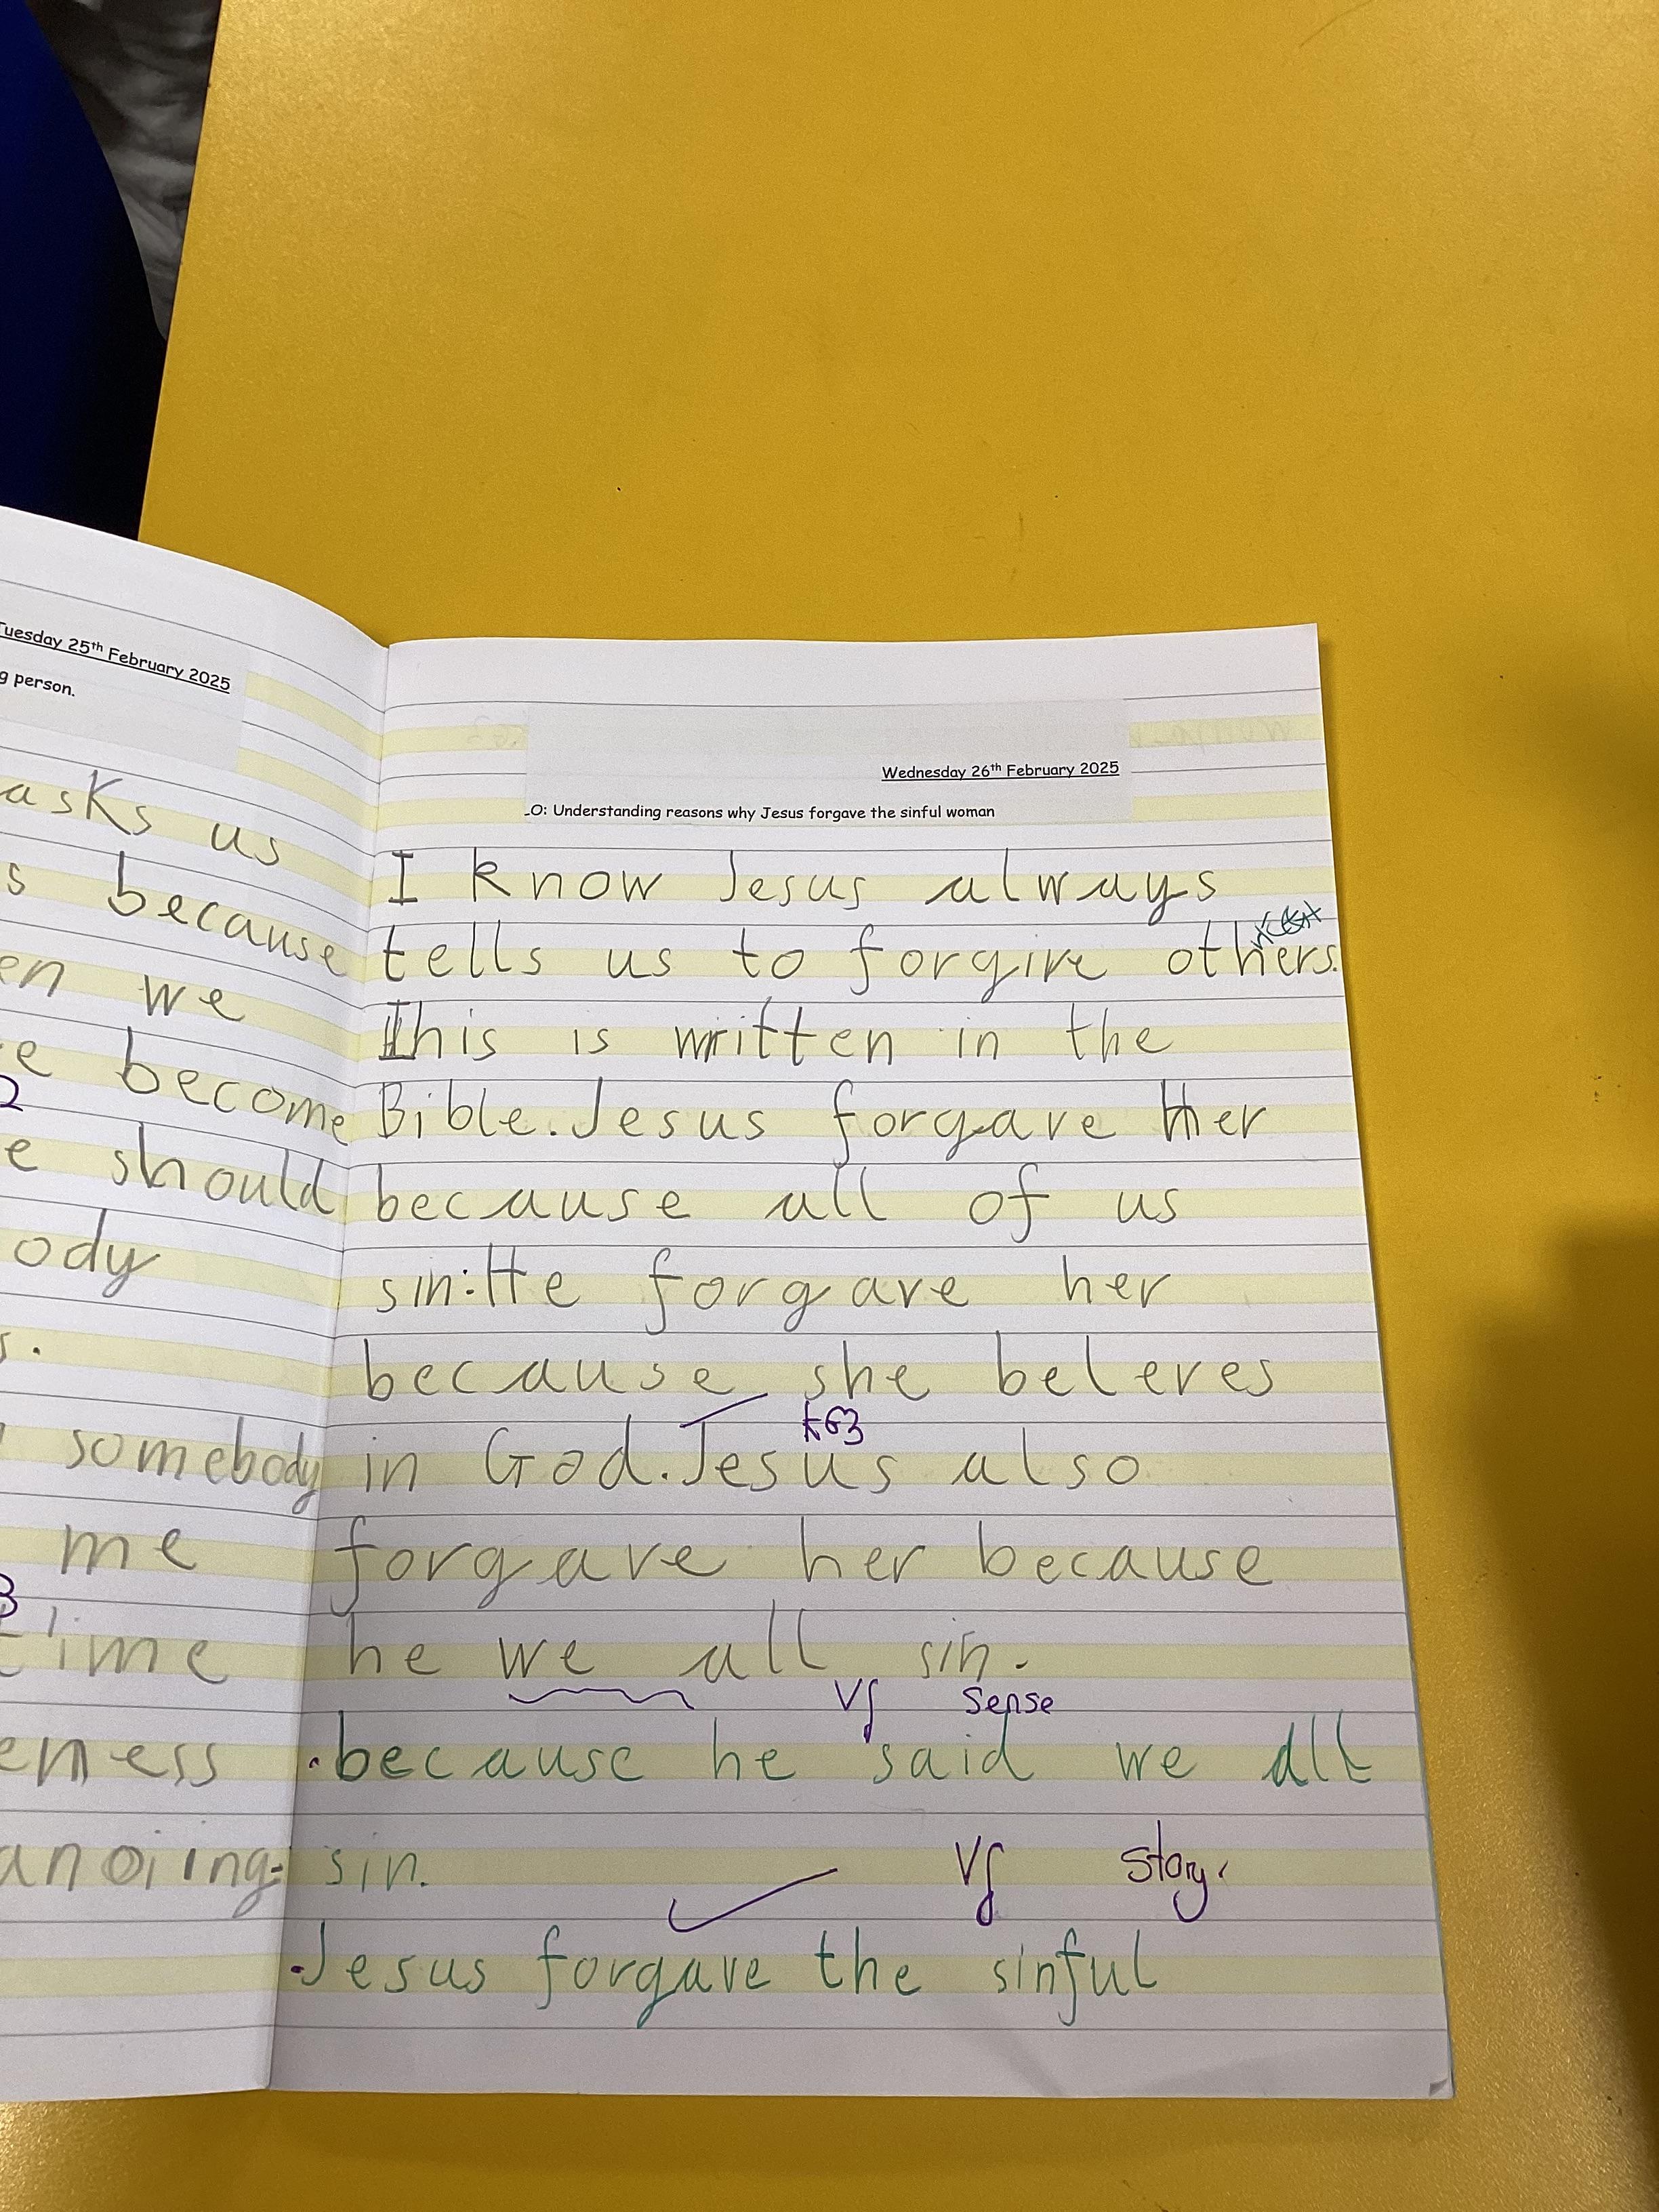 Tuesday 25th February 2025
g person.
asks us
s because
en we
e become
2
e should
ody
s.
somebody
me
3
time
eness
anoiing.
Wednesday 26th February 2025
LO: Understanding reasons why Jesus forgave the sinful woman
I know Jesus always
tells us to forgive others.
This is written in the
Bible. Jesus forgave Her
because all of us
sin. He forgave her
because she beleves
KG3
in God. Jesus also
forgave her because
he we all sin.
VF sense
. because he said we all
sin.
VF story.
. Jesus forgave the sinful